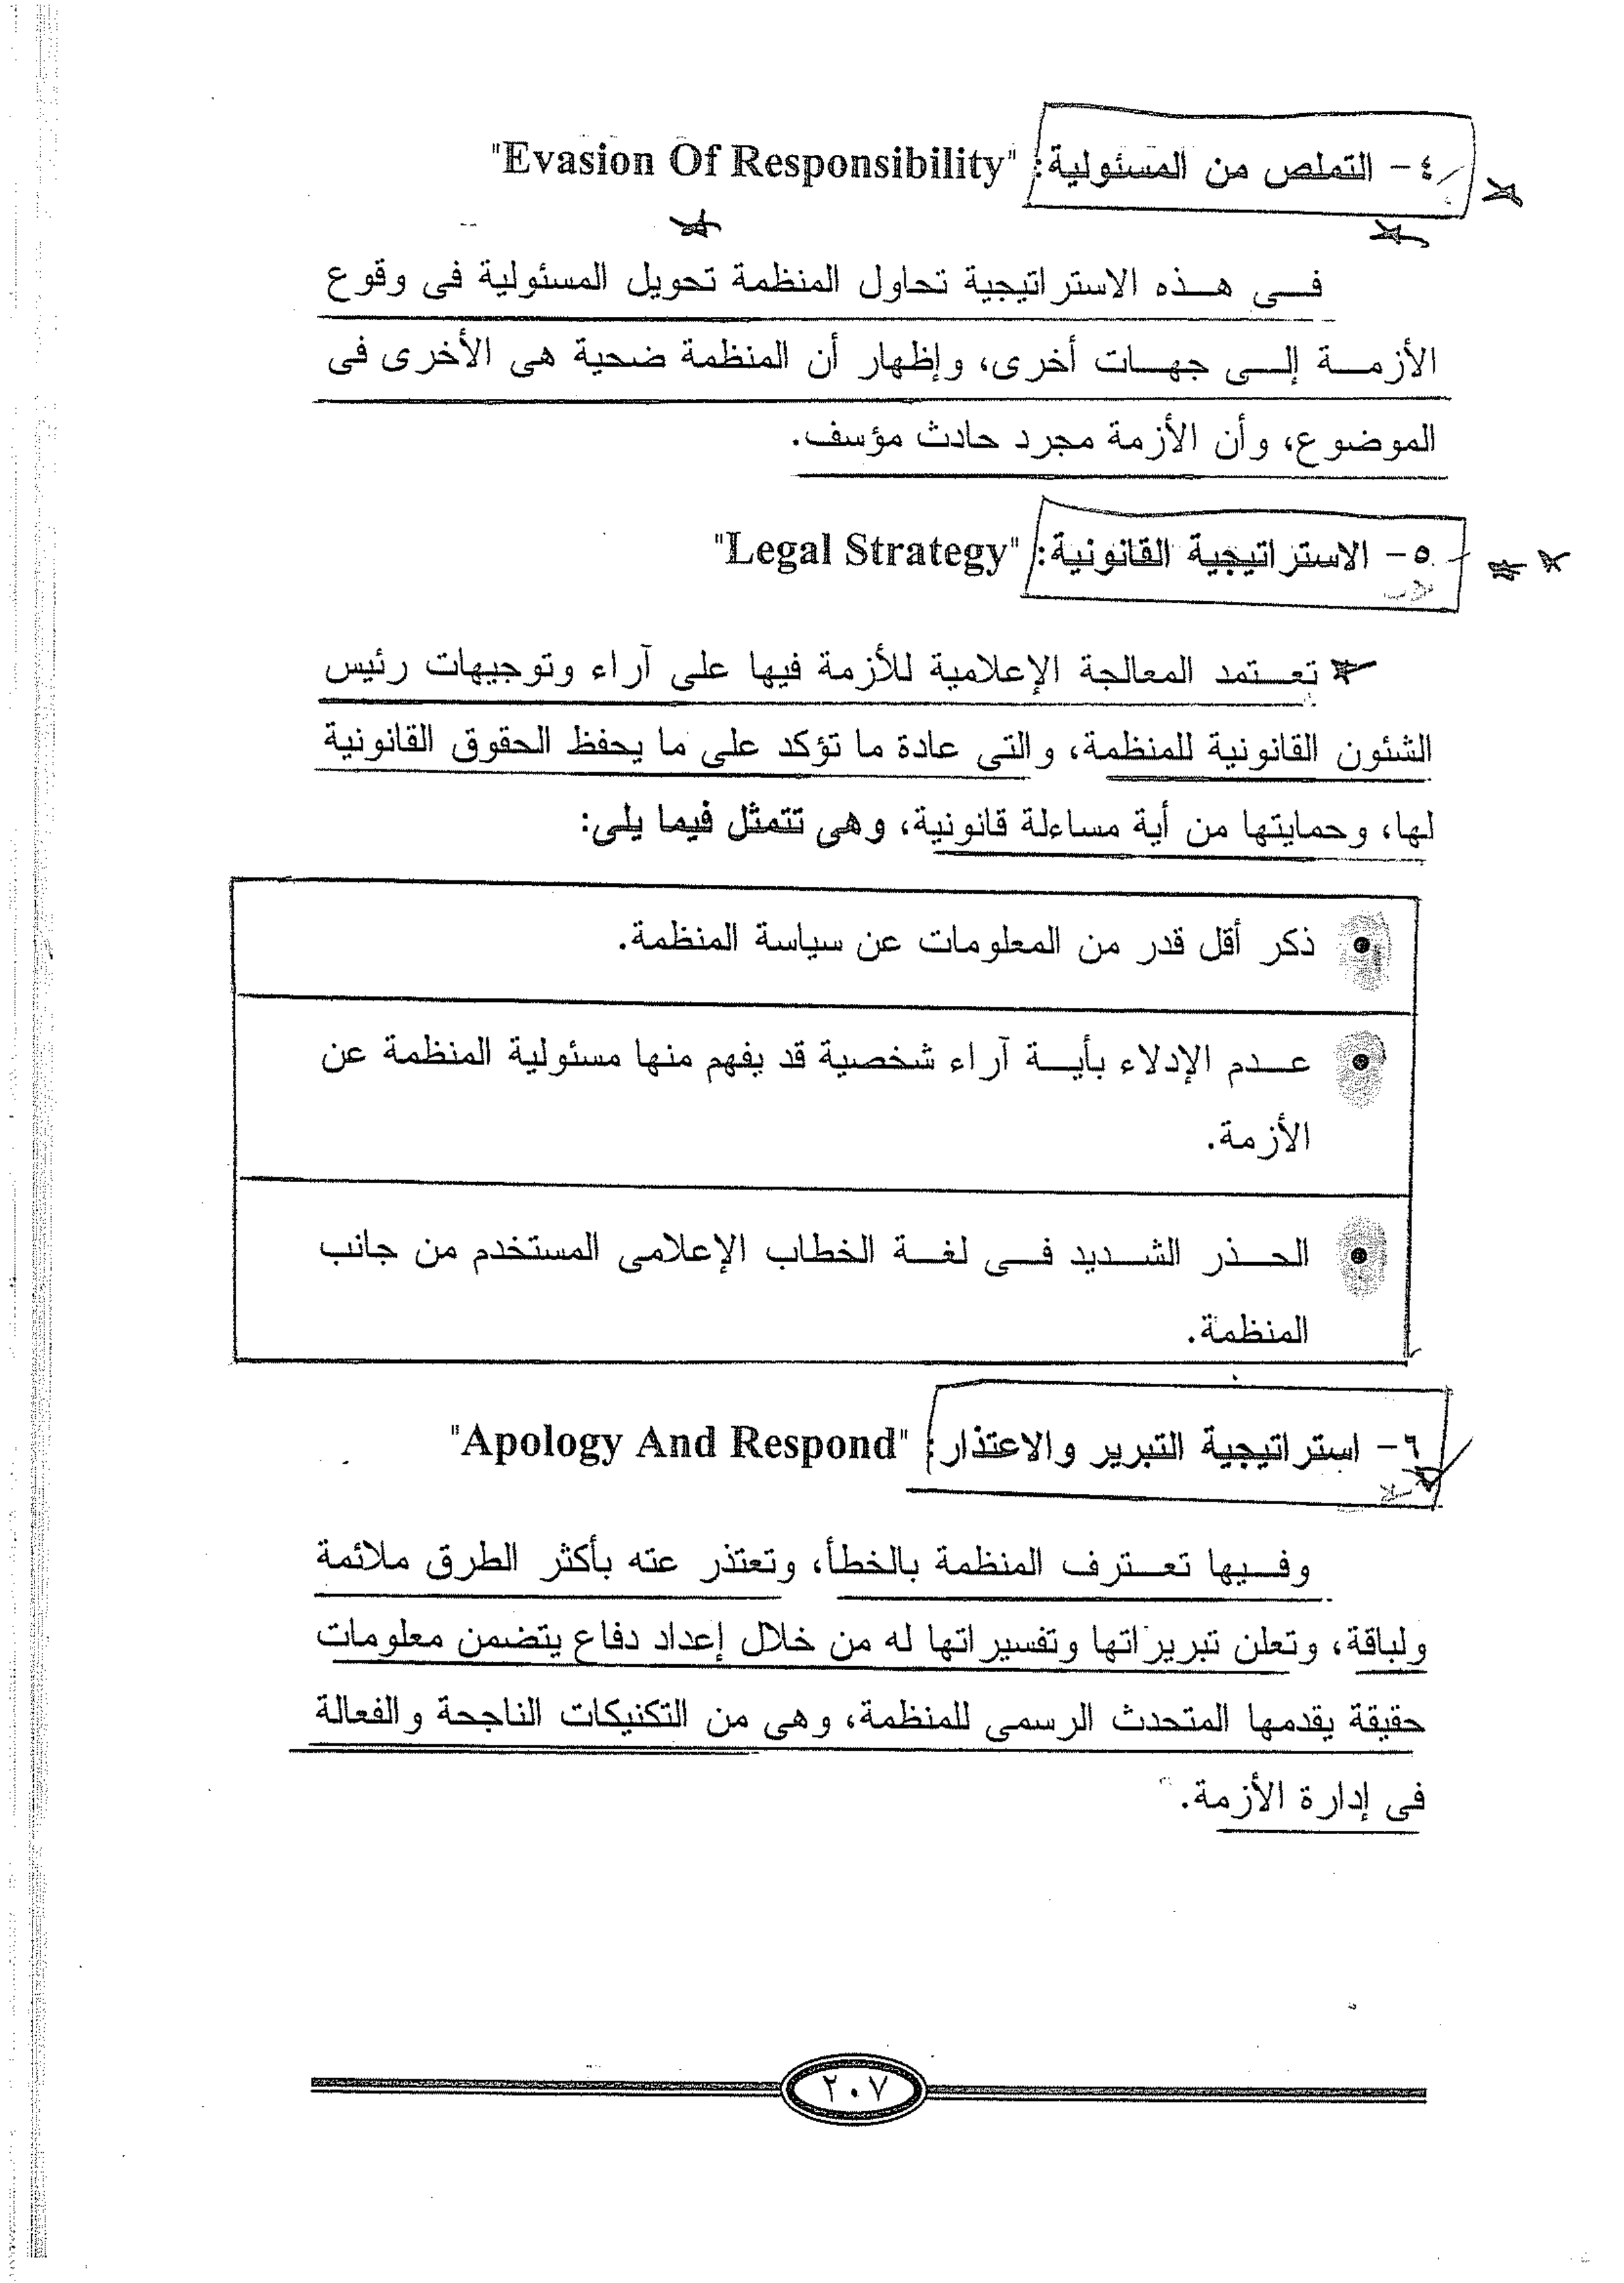 ٤- التملص من المسئولية: "Evasion Of Responsibility"
فى هذه الاستراتيجية تحاول المنظمة تحويل المسئولية فى وقوع
الأزمة إلى جهات أخرى، وإظهار أن المنظمة ضحية هى الأخرى فى
الموضوع، وأن الأزمة مجرد حادث مؤسف.
٥- الاستراتيجية القانونية: "Legal Strategy"
تعتمد المعالجة الإعلامية للأزمة فيها على آراء وتوجيهات رئيس
الشئون القانونية للمنظمة، والتى عادة ما تؤكد على ما يحفظ الحقوق القانونية
لها، وحمايتها من أية مساءلة قانونية، وهى تتمثل فيما يلى:
• ذكر أقل قدر من المعلومات عن سياسة المنظمة.
• عدم الإدلاء بأية آراء شخصية قد يفهم منها مسئولية المنظمة عن
الأزمة.
• الحذر الشديد فى لغة الخطاب الإعلامى المستخدم من جانب
المنظمة.
٦- استراتيجية التبرير والاعتذار: "Apology And Respond"
وفيها تعترف المنظمة بالخطأ، وتعتذر عته بأكثر الطرق ملائمة
ولباقة، وتعلن تبريراتها وتفسيراتها له من خلال إعداد دفاع يتضمن معلومات
حقيقة يقدمها المتحدث الرسمى للمنظمة، وهى من التكنيكات الناجحة والفعالة
فى إدارة الأزمة.
٢٠٧